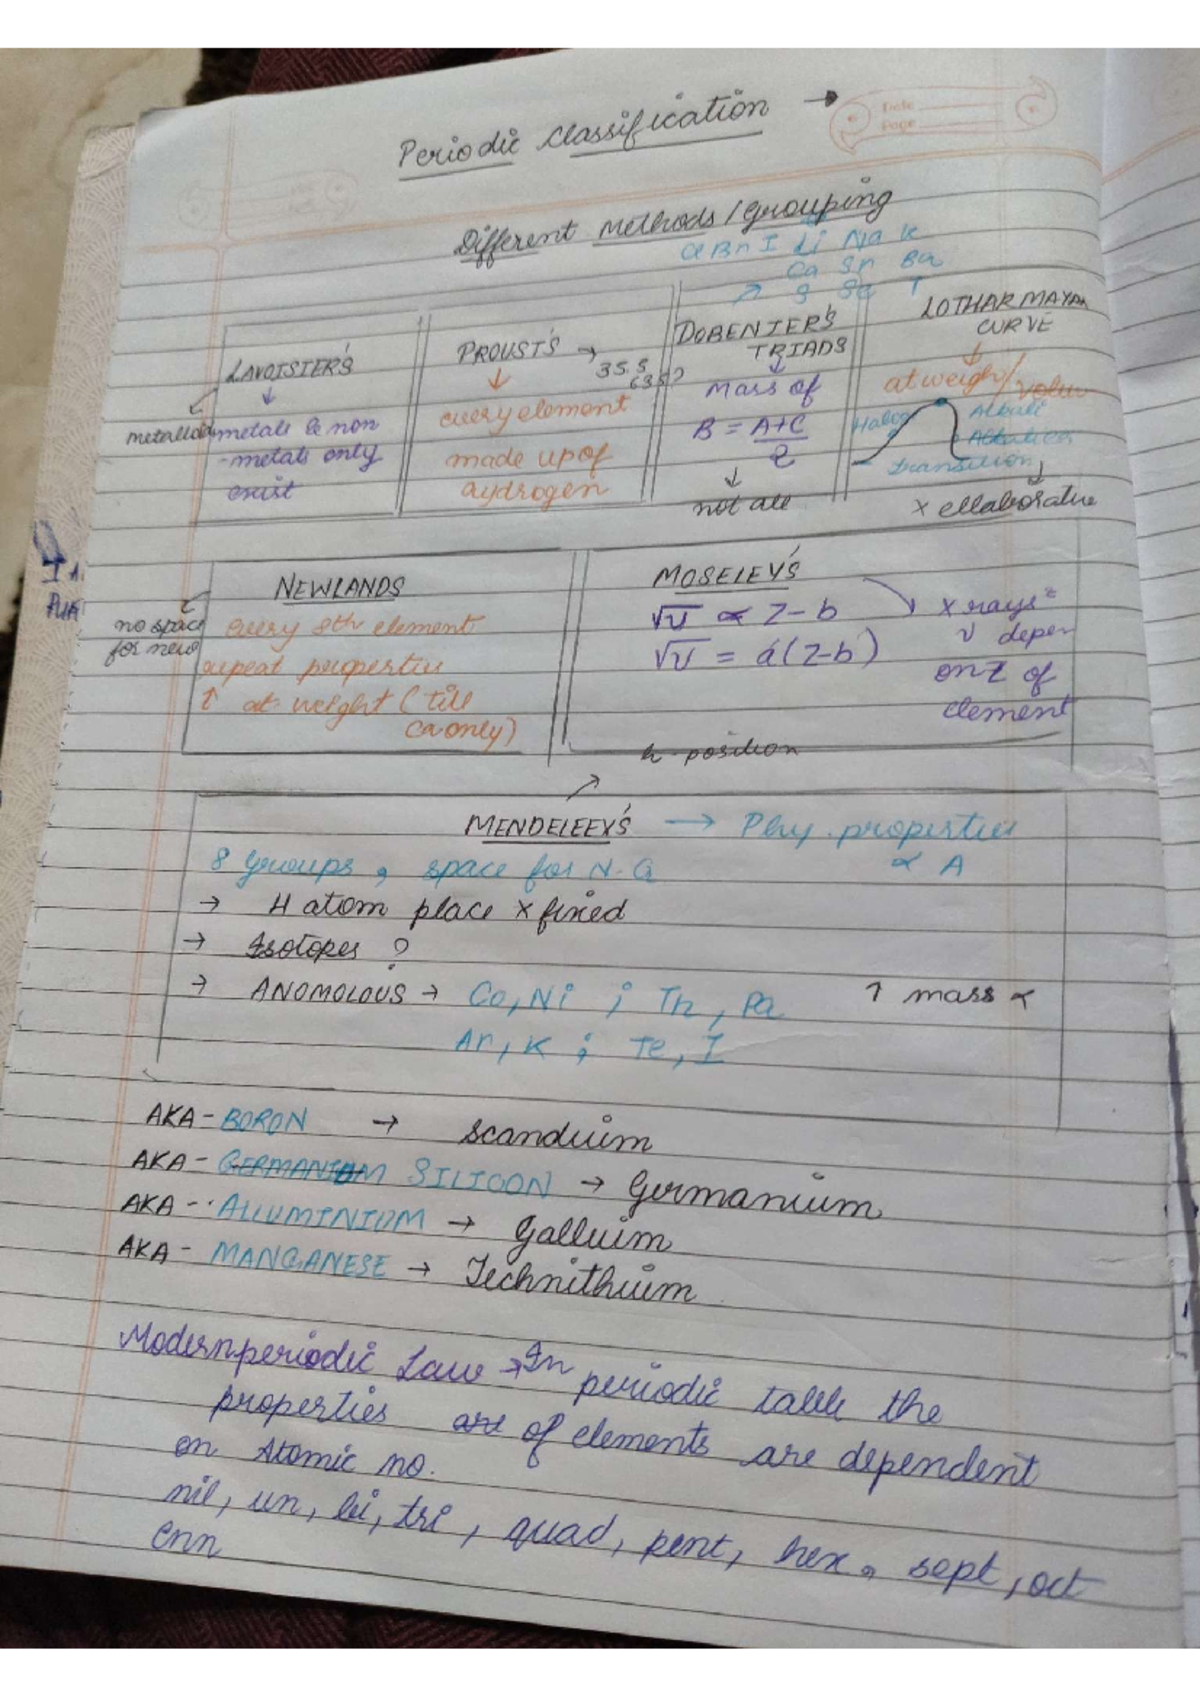 Date
Page
Periodic Classification →
Different Methods / Grouping
Cl Br I Li Na K
Ca Sr Ba
S Se T
LAVOISIER'S
↓
metals & non
-metals only
exist
PROUST'S → 35.5
63.5?
↓
every element
made up of
hydrogen
DOBENIER'S
TRIADS
↓
Mass of
B = A+C
2
↓
not all
LOTHAR MAYAR
CURVE
↓
at weigh/volu
Halog
Alkali
transition
x ellaborative
NEWLANDS
no space
for new
every 8th element
repeat properties
↑ at. weight (till
Ca only)
MOSELEY'S
√ν ∝ Z-b
√ν = a(Z-b)
x rays
ν depen
on Z of
element
h-position
MENDELEEV'S → Phy. properties
∝ A
8 groups, space for N.G
→ H atom place x fixed
→ Isotopes ?
→ ANOMOLOUS → Co, Ni ; Th, Pa
↑ mass ∝
Ar, K ; Te, I
AKA - BORON → Scandium
AKA - GERMANIUM SILICON → Germanium
AKA - ALLUMINIUM → Gallium
AKA - MANGANESE → Technithium
Modern periodic Law → In periodic table the
properties are of elements are dependent
on Atomic no.
nil, un, bi, tri, quad, pent, hex, sept, oct
enn